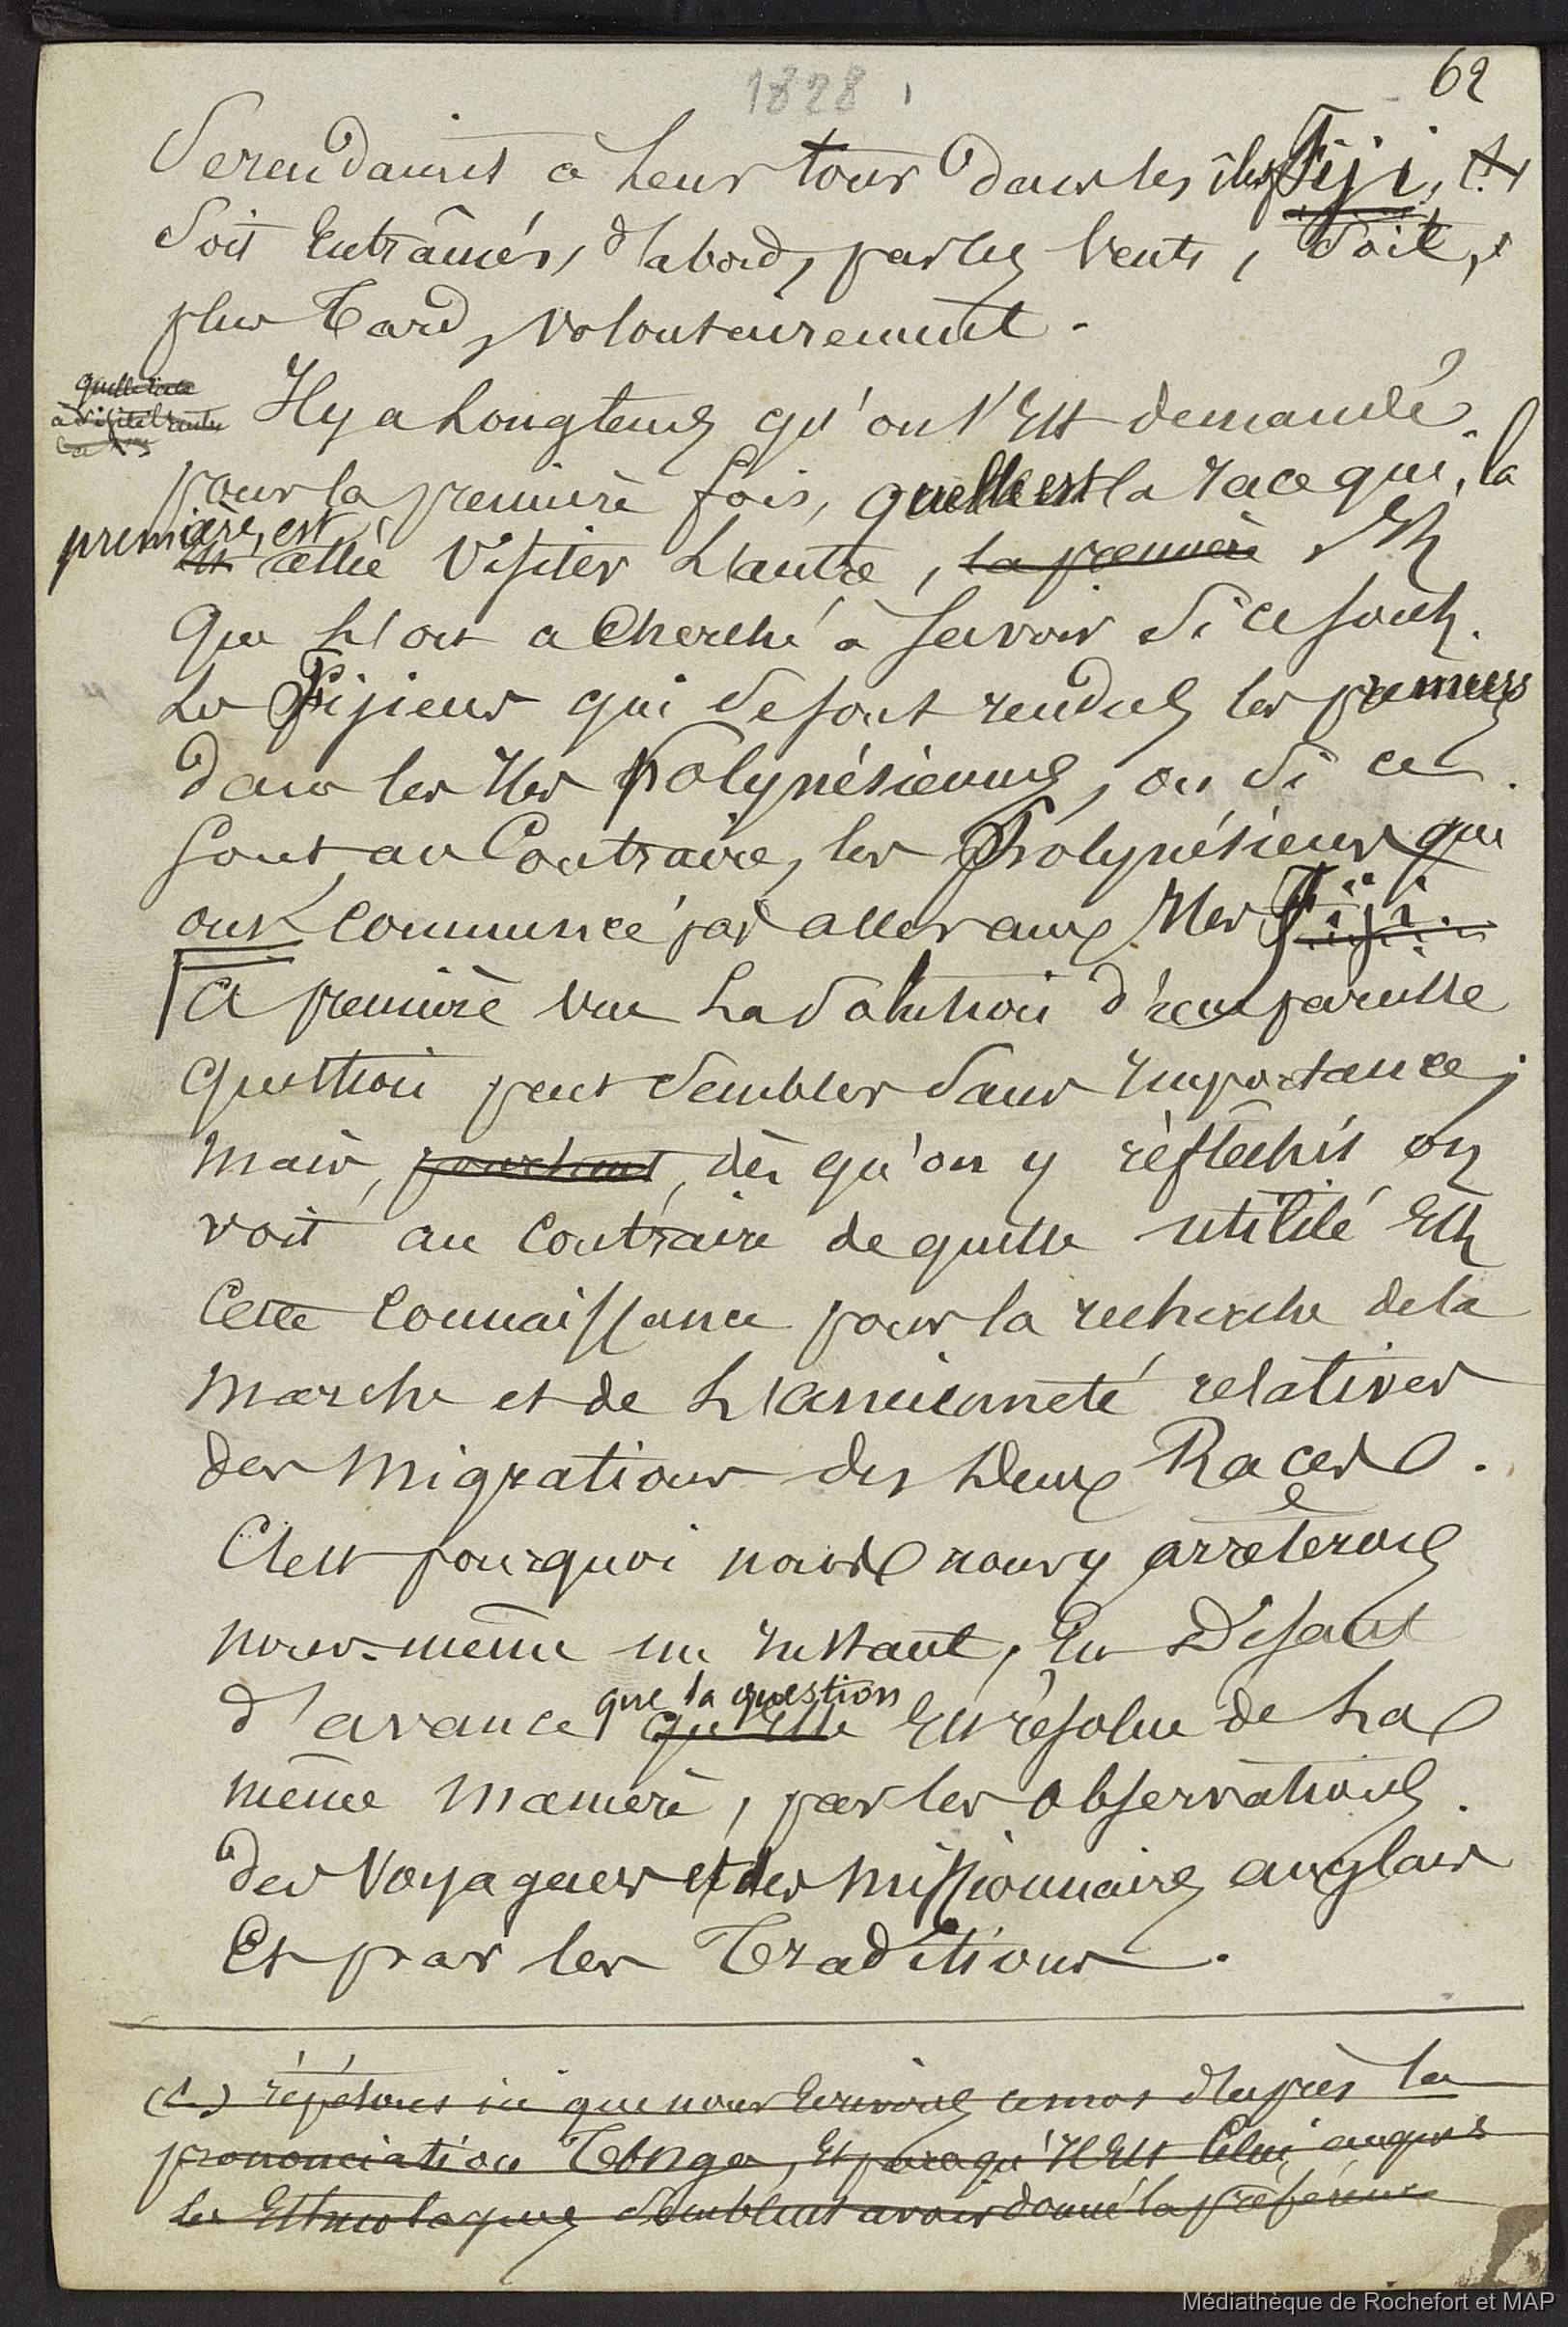 1828
62
Se rendaient à leur tour dans les îles Fiji,
Soit Entrâinés, d'abord, par les Vents, Soit,
plus Tard, volontairement.
quelle race
a visité l'autre
Il y a Longtems qu'on s'Est demandé.
pour la premiere fois, quelle est la race qui, la
première, est
Est allée Visiter L'autre, la premiere Et
Que L'on a Cherché à Savoir Si ce sont.
Les Fijiens qui se sont rendus les premiers
dans les Iles Polynésiennes, ou Si ce
Sont au Contraire, les Polynésiens qui
ont Commencé par aller aux Iles Fiji.
A premiere vue La Solution d'une pareille
question peut Sembler Sans Importance;
Mais, pourtant, dès qu'on y réfléchit on
voit au Contraire de quelle utilité Est
Cette Connaissance pour la recherche de la
Marche et de L'ancienneté relatives
des Migrations des Deux Races.
C'est pourquoi nous nous y arrêterons
nous-même un Instant, En Disant
que la question
d'avance qu'Elle Est résolue de La
même Maniere, par les Observations.
des Voyageurs et des Missionnaires anglais
Et par les Traditions.
(1.) répétons ici que nous Ecrivons ce mot d'après la
prononciation Tonga, Et parcequ'Il Est Celui auquel
les Ethnologues Semblent avoir donné la préférence
Médiathèque de Rochefort et MAP